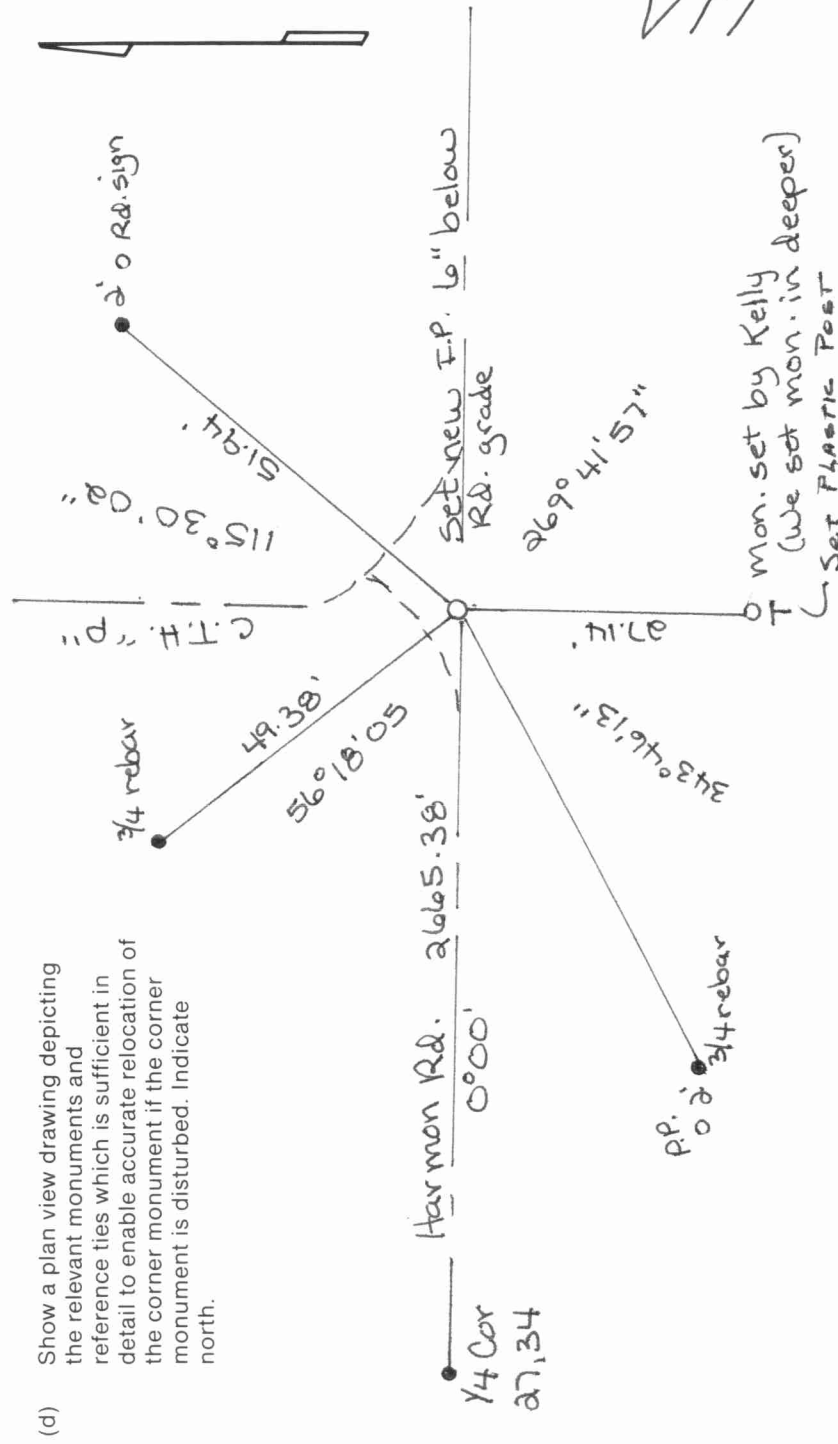 (d) Show a plan view drawing depicting
the relevant monuments and
reference ties which is sufficient in
detail to enable accurate relocation of
the corner monument if the corner
monument is disturbed. Indicate
north.
3/4 rebar
49.38'
56°18'05
C.T.H. "P"
115°30'02"
51.94'
2' O Rd. sign
Set new I.P. 6" below
Rd. grade
269°41'57"
Harmon Rd. 2665.38'
0°00'
1/4 Cor
27,34
P.P.
O 2'
3/4 rebar
343°46'13"
27.14'
T
mon. set by Kelly
(We set mon. in deeper)
SET PLASTIC POST